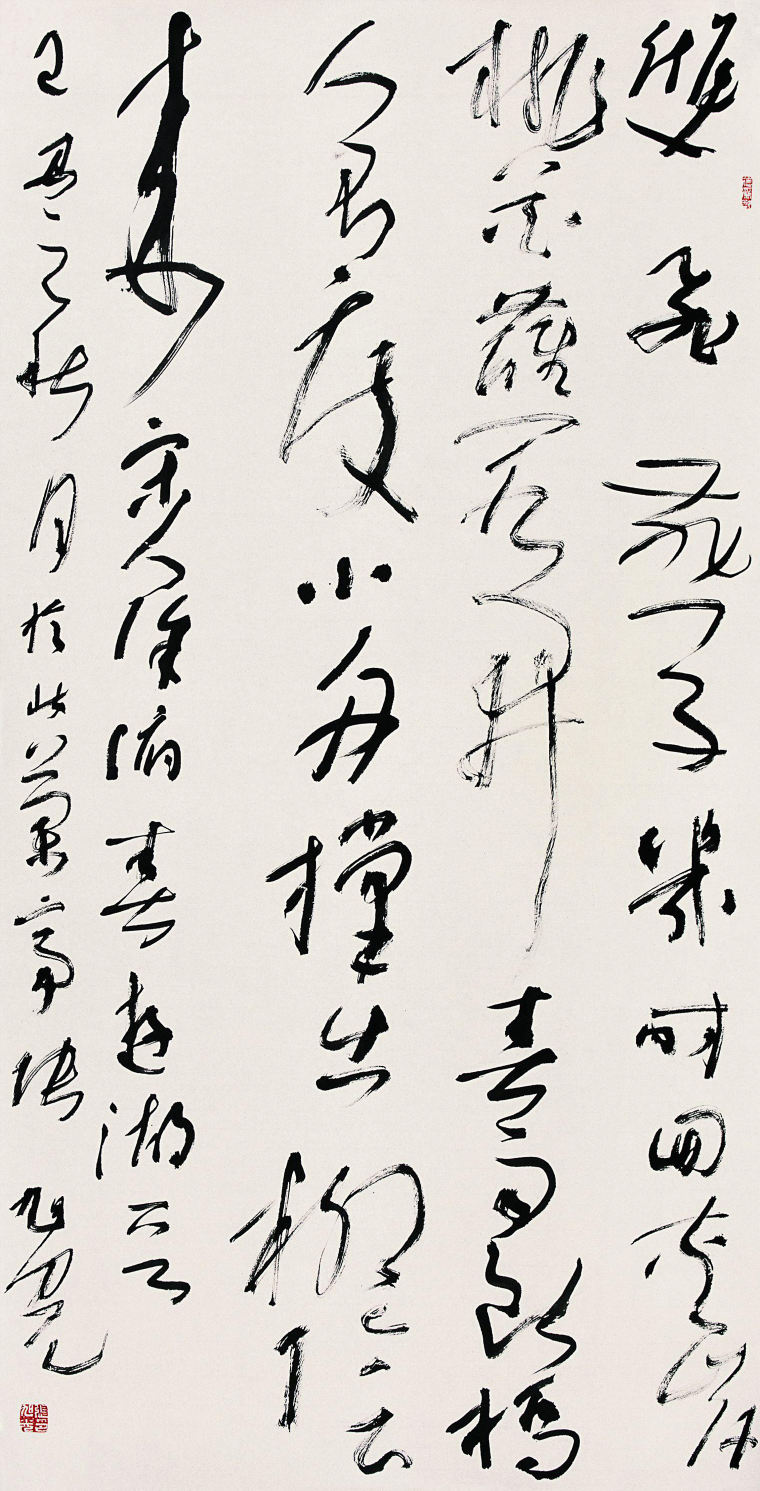 雙飛燕子幾時回夾岸
桃花蘸水開春雨斷橋
人不度小舟撐出柳陰
來 宋人徐俯春遊湖一首
己丑之秋月於北蘭亭張旭光